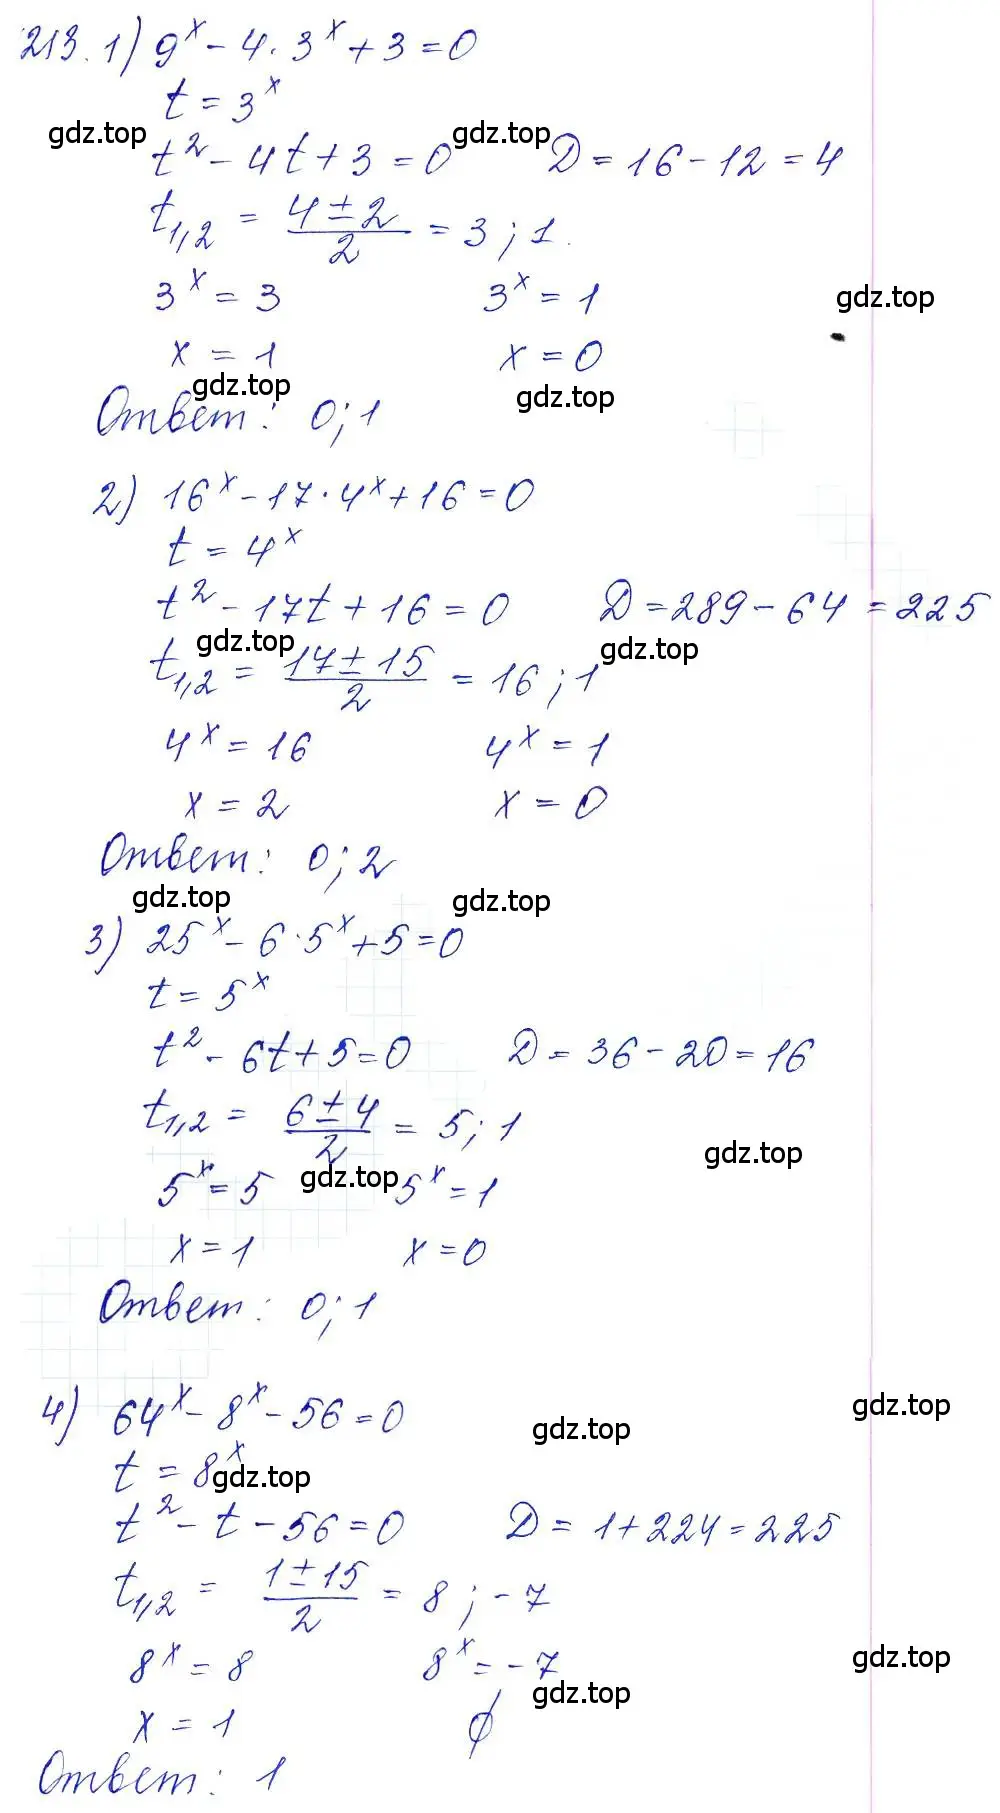 213. 1) 9^x - 4 · 3^x + 3 = 0
t = 3^x
gdz.top gdz.top
t^2 - 4t + 3 = 0 D = 16 - 12 = 4
t_{1,2} = (4 ± 2)/2 = 3 ; 1.
3^x = 3 3^x = 1 gdz.top
x = 1 x = 0
gdz.top gdz.top
Ответ: 0; 1
2) 16^x - 17 · 4^x + 16 = 0
t = 4^x
t^2 - 17t + 16 = 0 D = 289 - 64 = 225
gdz.top gdz.top
t_{1,2} = (17 ± 15)/2 = 16 ; 1
4^x = 16 4^x = 1
x = 2 x = 0
Ответ: 0; 2
gdz.top gdz.top
3) 25^x - 6 · 5^x + 5 = 0
t = 5^x
t^2 - 6t + 5 = 0 D = 36 - 20 = 16
t_{1,2} = (6 ± 4)/2 = 5; 1
gdz.top gdz.top
5^x = 5 5^x = 1
x = 1 x = 0
Ответ: 0; 1
4) 64^x - 8^x - 56 = 0
gdz.top gdz.top
t = 8^x
gdz.top
t^2 - t - 56 = 0 D = 1 + 224 = 225
t_{1,2} = (1 ± 15)/2 = 8 ; -7
8^x = 8 8^x = -7 gdz.top
gdz.top
x = 1 ∅
Ответ: 1